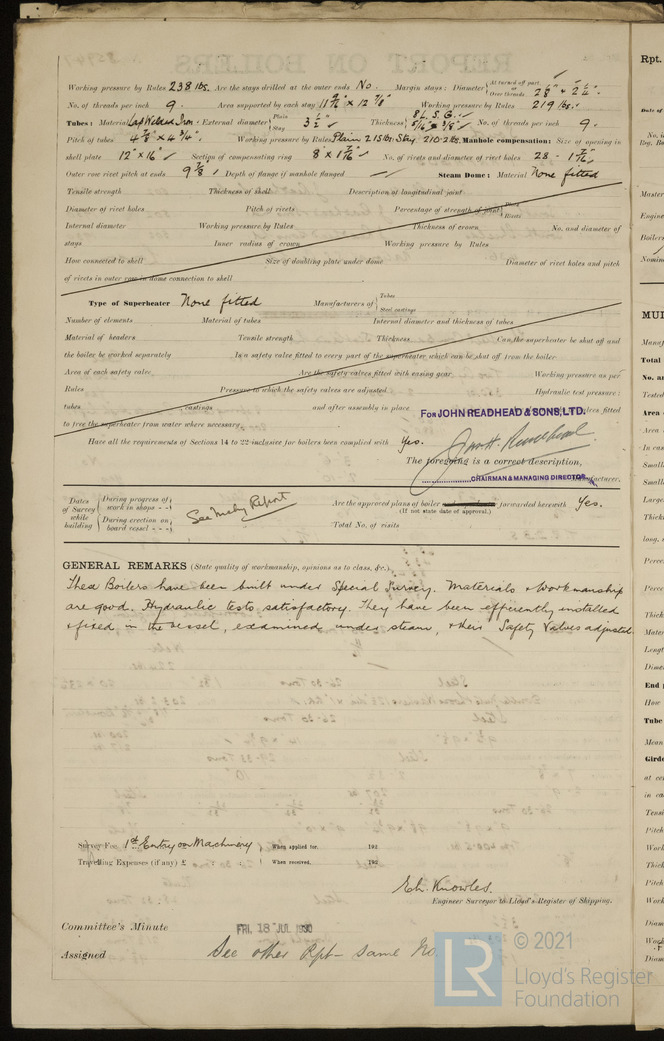 REPORT ON BOILERS
Working pressure by Rules 238 lbs. Are the stays drilled at the outer ends No. Margin stays: Diameter { At turned off part, or Over threads 2 3/8" & 2 1/4"
No. of threads per inch 9. Area supported by each stay Working pressure by Rules 219 lbs.
Tubes: Material Lap Welded Iron External diameter { Plain Stay 3 1/2" Thickness { 8 L.S.G. 5/16" & 3/8" No. of threads per inch 9.
Pitch of tubes 4 7/8" x 4 3/4" Working pressure by Rules Plain 215 lbs. Stay 210.2 lbs. Manhole compensation: Size of opening in
shell plate 12" x 16" Section of compensating ring 8" x 1 7/16" No. of rivets and diameter of rivet holes 28 - 1 7/16"
Outer row rivet pitch at ends 9 7/8" Depth of flange if manhole flanged Steam Dome: Material None fitted
Tensile strength Thickness of shell Description of longitudinal joint
Diameter of rivet holes Pitch of rivets Percentage of strength of joint { Plate Rivets
Internal diameter Working pressure by Rules Thickness of crown No. and diameter of
stays Inner radius of crown Working pressure by Rules
How connected to shell Size of doubling plate under dome Diameter of rivet holes and pitch
of rivets in outer row in dome connection to shell
Type of Superheater None fitted Manufacturers of { Tubes Steel castings
Number of elements Material of tubes Internal diameter and thickness of tubes
Material of headers Tensile strength Thickness Can the superheater be shut off and
the boiler be worked separately Is a safety valve fitted to every part of the superheater which can be shut off from the boiler
Area of each safety valve Are the safety valves fitted with easing gear Working pressure as per
Rules Pressure to which the safety valves are adjusted Hydraulic test pressure:
tubes castings and after assembly in place valves fitted
to free the superheater from water where necessary
FOR JOHN READHEAD & SONS, LTD.
Have all the requirements of Sections 14 to 22 inclusive for boilers been complied with Yes.
The foregoing is a correct description,
CHAIRMAN & MANAGING DIRECTOR Manufacturer.
Dates of Survey while building { During progress of work in shops - - During erection on board vessel - - - See Machy Report Are the approved plans of boiler forwarded herewith Yes.
(If not state date of approval.)
Total No. of visits
GENERAL REMARKS (State quality of workmanship, opinions as to class, &c.)
These Boilers have been built under Special Survey. Materials & workmanship
are good. Hydraulic tests satisfactory. They have been efficiently installed
& fixed in the vessel, examined under steam, & their Safety Valves adjusted.
Survey Fee 1st Entry on Machinery When applied for, 192
Travelling Expenses (if any) £ When received, 192
Ch. Knowles.
Engineer Surveyor to Lloyd's Register of Shipping.
Committee's Minute FRI. 18 JUL 1930
Assigned See other Rpt - same No.
LR © 2021
Lloyd's Register
Foundation
Rpt.
Date of
No. in
Reg. Bo
Master
Engine
Boilers
Nomin
MUL
Manuf
Total
No. an
Tested
Area
Area
In cas
Smalle
Smalle
Large
Thick
long. s
Perce
Perce
Thick
Mater
Lengt
Dime
End p
How
Tube
Mean
Girde
at cen
in ca
Tensi
Pitch
Work
Thick
Pitch
Work
Diam
Work
Diam